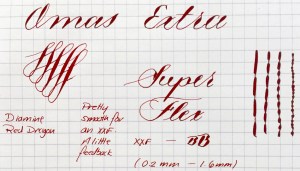 Omas Extra
Super
Flex
Diamine
Red Dragon
Pretty
smooth for
an XXF.
A little
feedback
XXF — BB
(0.2 mm – 1.6 mm)